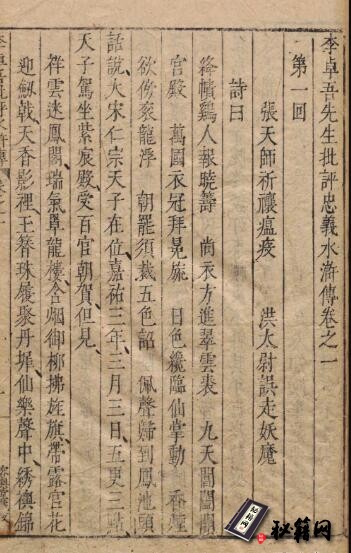 李卓吾先生批評忠義水滸傳卷之一
第一回
張天師祈禳瘟疫　洪太尉誤走妖魔
詩曰
絳幘鷄人報曉籌　尚衣方進翠雲裘　九天閶闔開
宮殿　萬國衣冠拜冕旒　日色纔臨仙掌動　香煙
欲傍衮龍浮　朝罷須裁五色詔　佩聲歸到鳳池頭
話說大宋仁宗天子在位嘉祐三年三月三日五更三點
天子駕坐紫宸殿受百官朝賀但見
祥雲迷鳳閣瑞氣罩龍樓含烟御柳拂旌旗帶露宮花
迎劔戟天香影裡玉簪珠履聚丹墀仙樂聲中綉襖錦
秘籍网
秘籍网